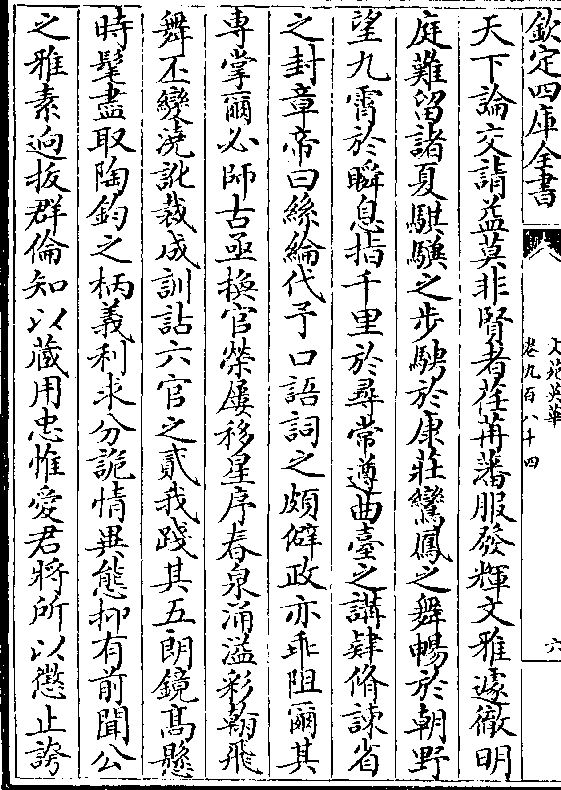 欽定四庫全書
文苑英華
卷九百八十四
六
天下論交請益莫非賢者荏苒蕃服發輝文雅遽徹明
庭難留諸夏騏驥之步騁於康莊鸞鳳之舞暢於朝野
望九霄於瞬息指千里於尋常遵曲臺之講肄脩諫省
之封章帝曰絲綸代予口語詞之頗僻政亦乖阻爾其
専掌爾必師古亟換官榮屡移星序春泉涌溢彩翰飛
舞丕變澆訛裁成訓詁六官之貳我踐其五朗鏡高懸
時髦盡取陶鈞之柄義利求分詭情異態抑有前聞公
之雅素逈拔群倫知以藏用忠惟愛君將所以懲止誇